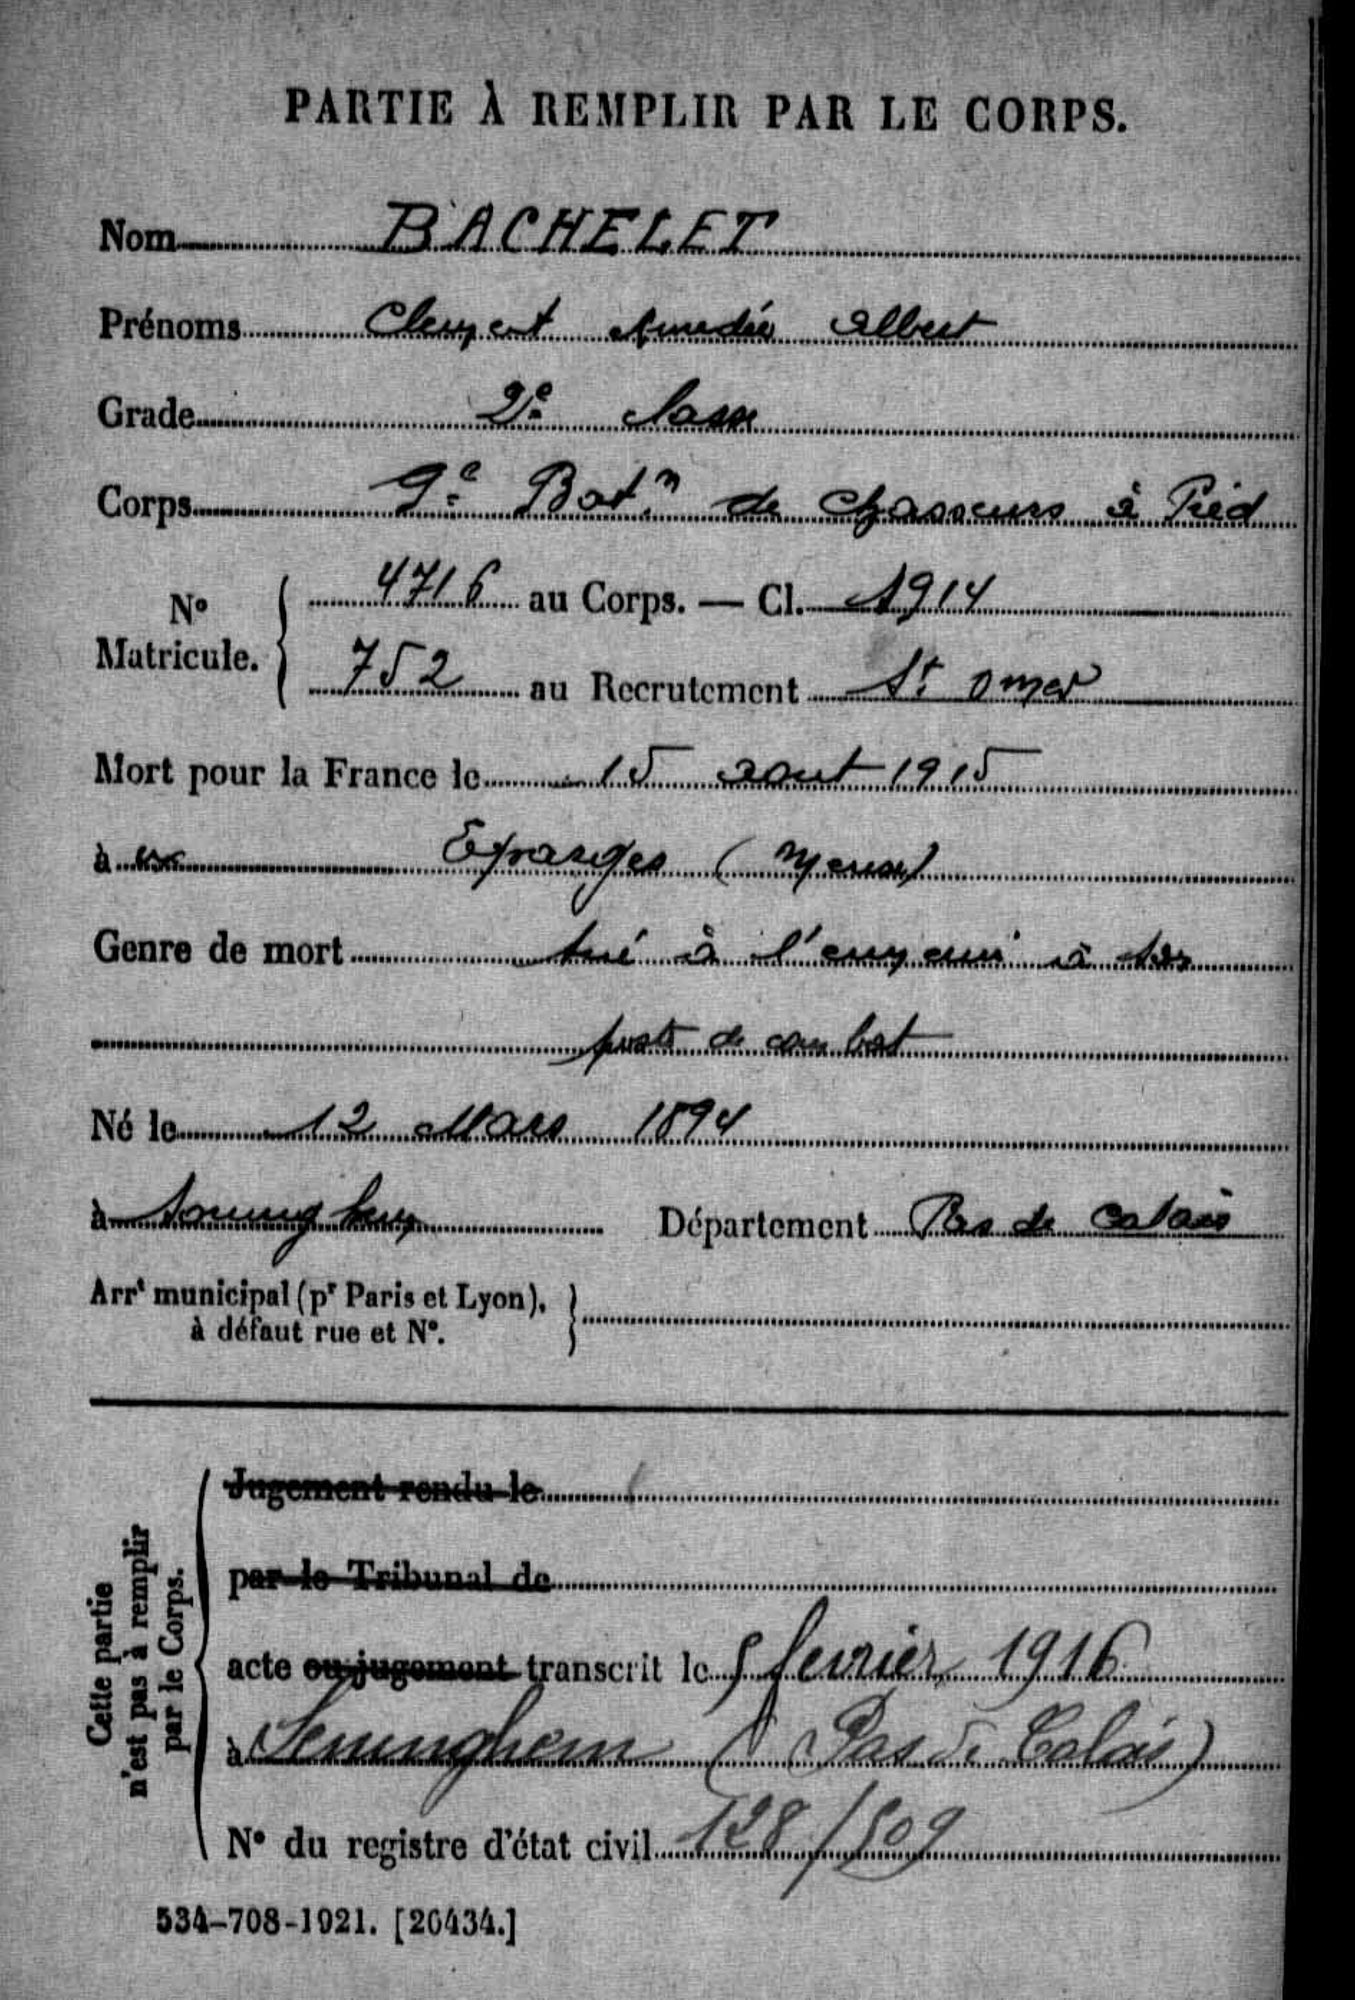 PARTIE À REMPLIR PAR LE CORPS.
Nom BACHELET
Prénoms Clement Amedée Albert
Grade 2e classe
Corps 9e Bat.n de Chasseurs à Pied
No Matricule. 4716 au Corps. — Cl. 1914
752 au Recrutement St Omer
Mort pour la France le 15 aout 1915
à aux Eparges (Meuse)
Genre de mort tué à l'ennemi à son
poste de combat
Né le 12 Mars 1894
à Département Pas de Calais
Arrt municipal (pr Paris et Lyon),
à défaut rue et No.
Cette partie
n'est pas à remplir
par le Corps.
Jugement rendu le
par le Tribunal de
acte ou jugement transcrit le 5 fevrier 1916
à Seninghem (Pas de Calais)
No du registre d'état civil 128/509
534-708-1921. [26434.]